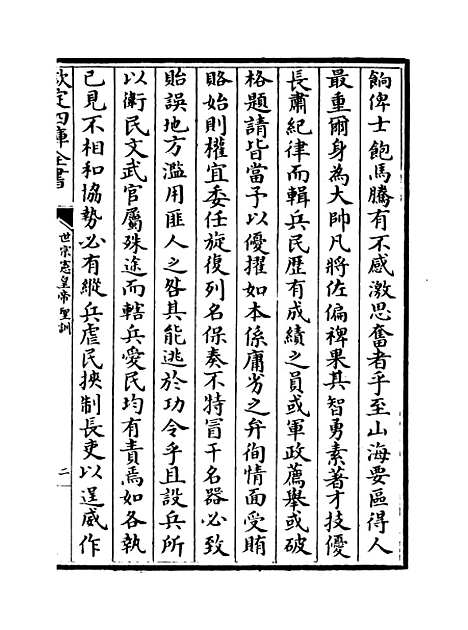 餉俾士飽馬騰有不感激思奮者乎至山海要區得人
最重爾身為大帥凡將佐偏裨果其智勇素著才技優
長肅紀律而輯兵民歷有成績之員或軍政薦舉或破
格題請皆當予以優擢如本係庸劣之弁徇情面受賄
賂始則權宜委任旋復列名保奏不特冒干名器必致
貽誤地方濫用匪人之咎其能逃於功令乎且設兵所
以衛民文武官屬殊途而轄兵愛民均有責焉如各執
已見不相和協勢必有縱兵虐民挾制長吏以逞威作
欽定四庫全書
世宗憲皇帝聖訓
二